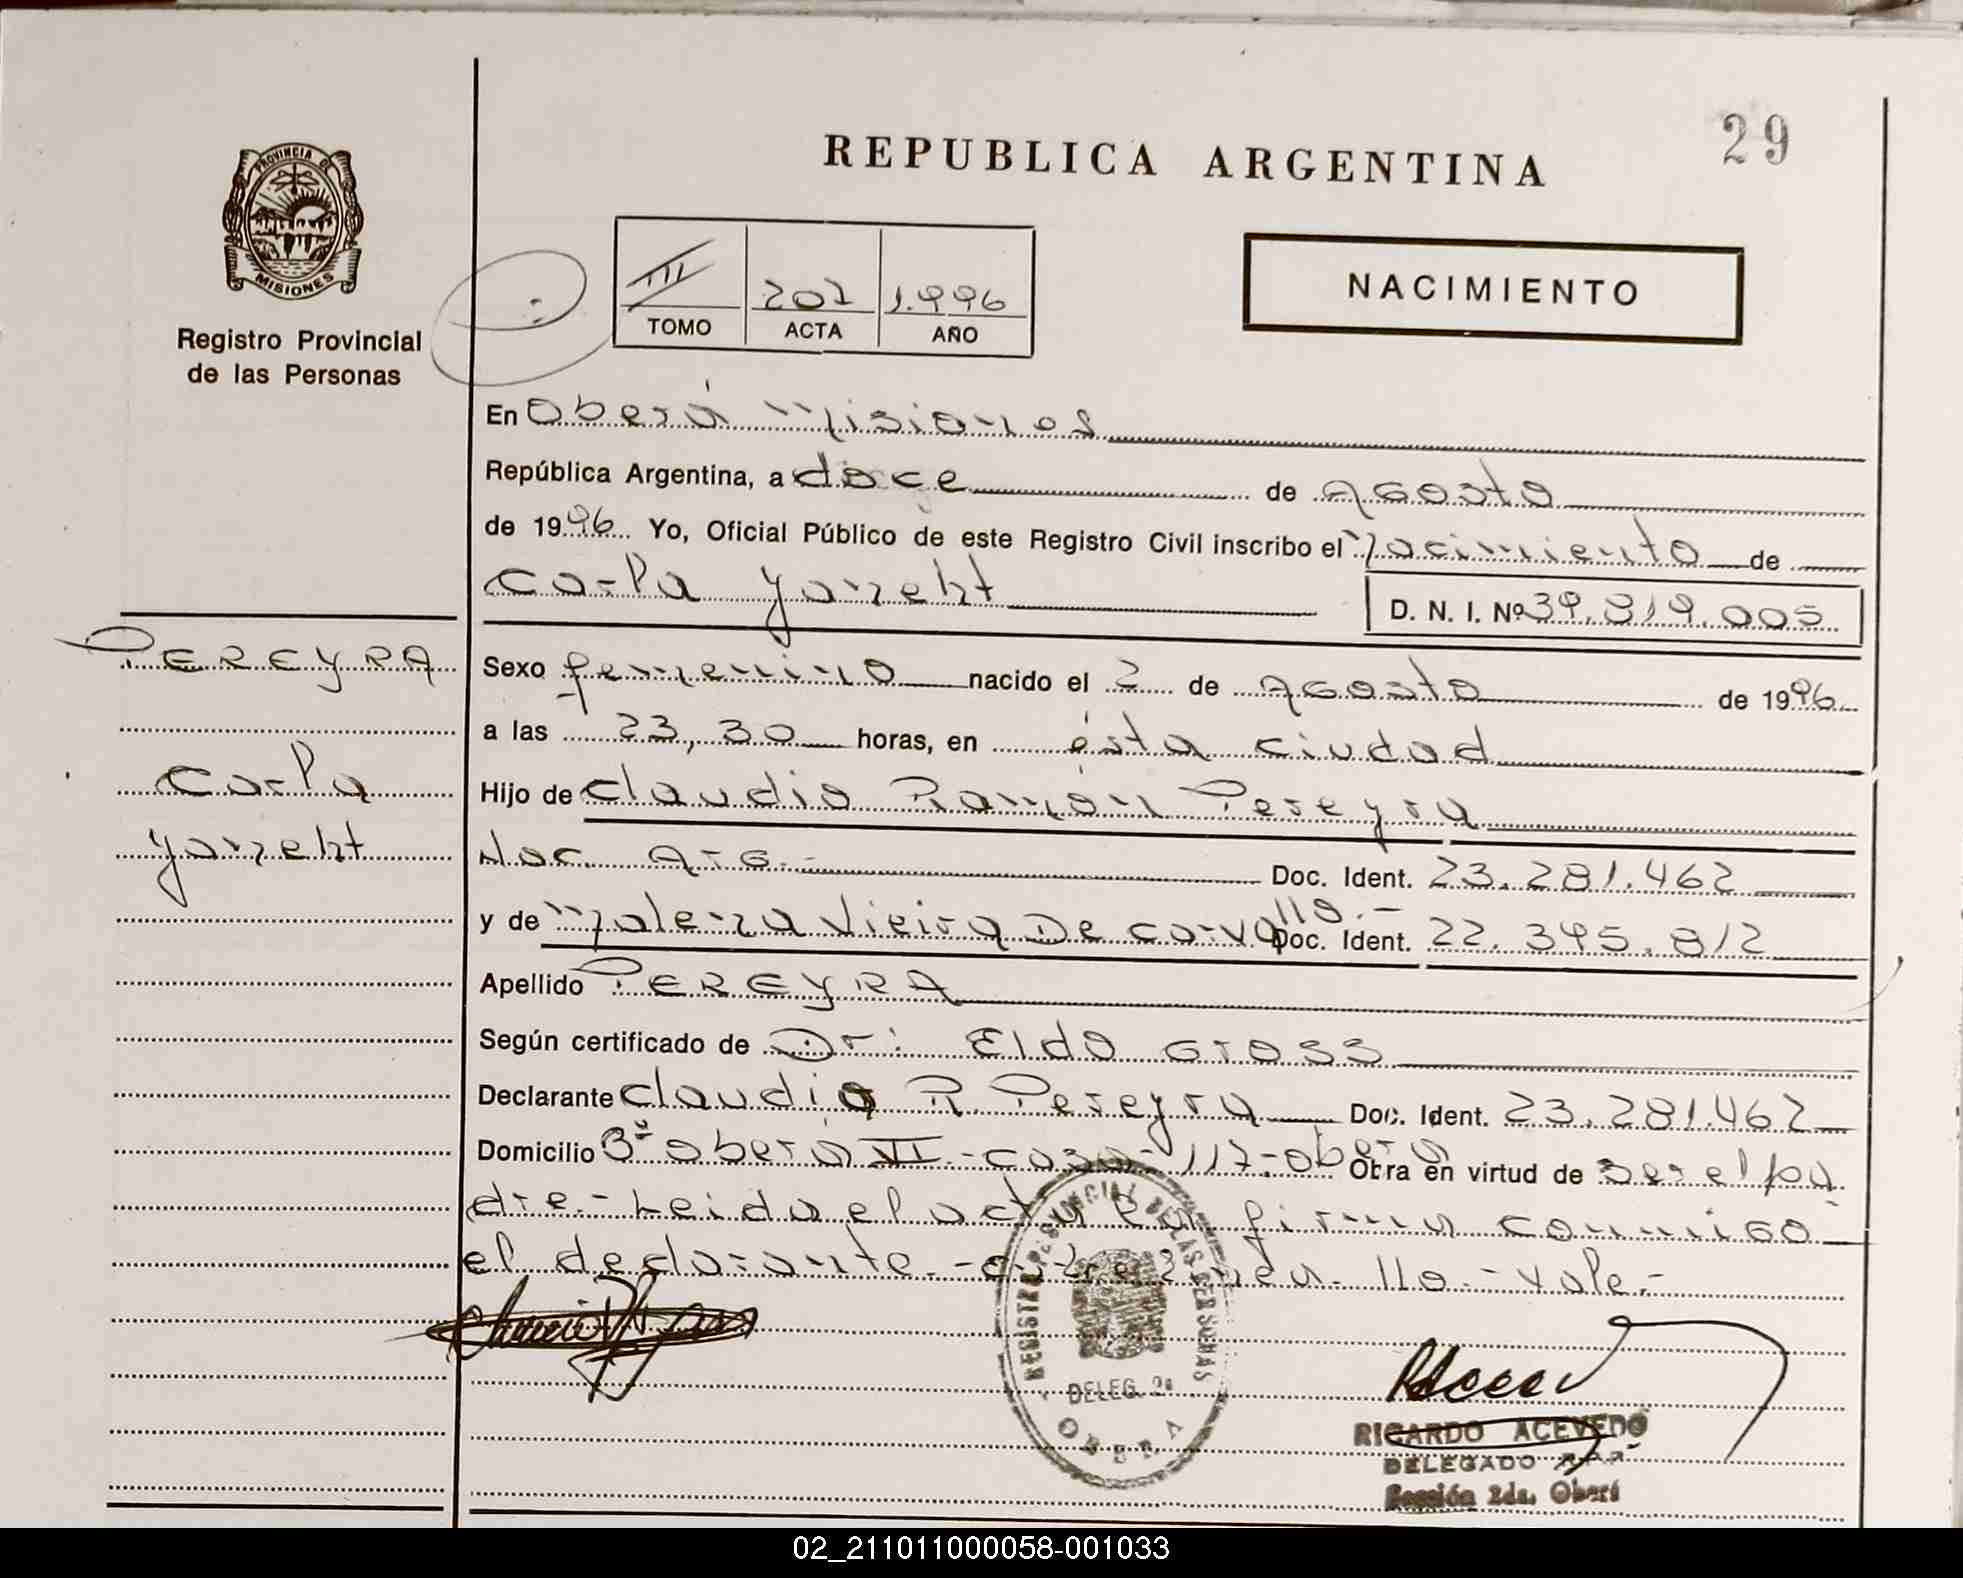 29
REPUBLICA ARGENTINA
PROVINCIA DE
MISIONES
Registro Provincial
de las Personas
III 207 1.996
TOMO ACTA AÑO
NACIMIENTO
En Oberá Misiones
República Argentina, a doce de Agosto
de 1996 Yo, Oficial Público de este Registro Civil inscribo el Nacimiento de
Carla
D. N. I. Nº 39.819.005
PEREYRA
Carla
Sexo femenino nacido el 2 de Agosto de 1996
a las 23,30 horas, en ésta ciudad
Hijo de Claudio Ramón Pereyra
Nac. Arg.- Doc. Ident. 23.281.462
y de Malena Vieira De Carva llo.- Doc. Ident. 22.395.812
Apellido PEREYRA
Según certificado de Dr: Eldo Gross
Declarante Claudio R. Pereyra Doc. Ident. 23.281.462
Domicilio Bº Oberá VI - casa - 117 - Oberá Obra en virtud de ser el pa
dre - Leida el acta la firma conmigo
el declarante - entre linea llo.- vale.-
REGISTRO PROVINCIAL DE LAS PERSONAS
DELEG. 2a
OBERA
RICARDO ACEVEDO
DELEGADO
Sección 2da. Oberá
02_211011000058-001033